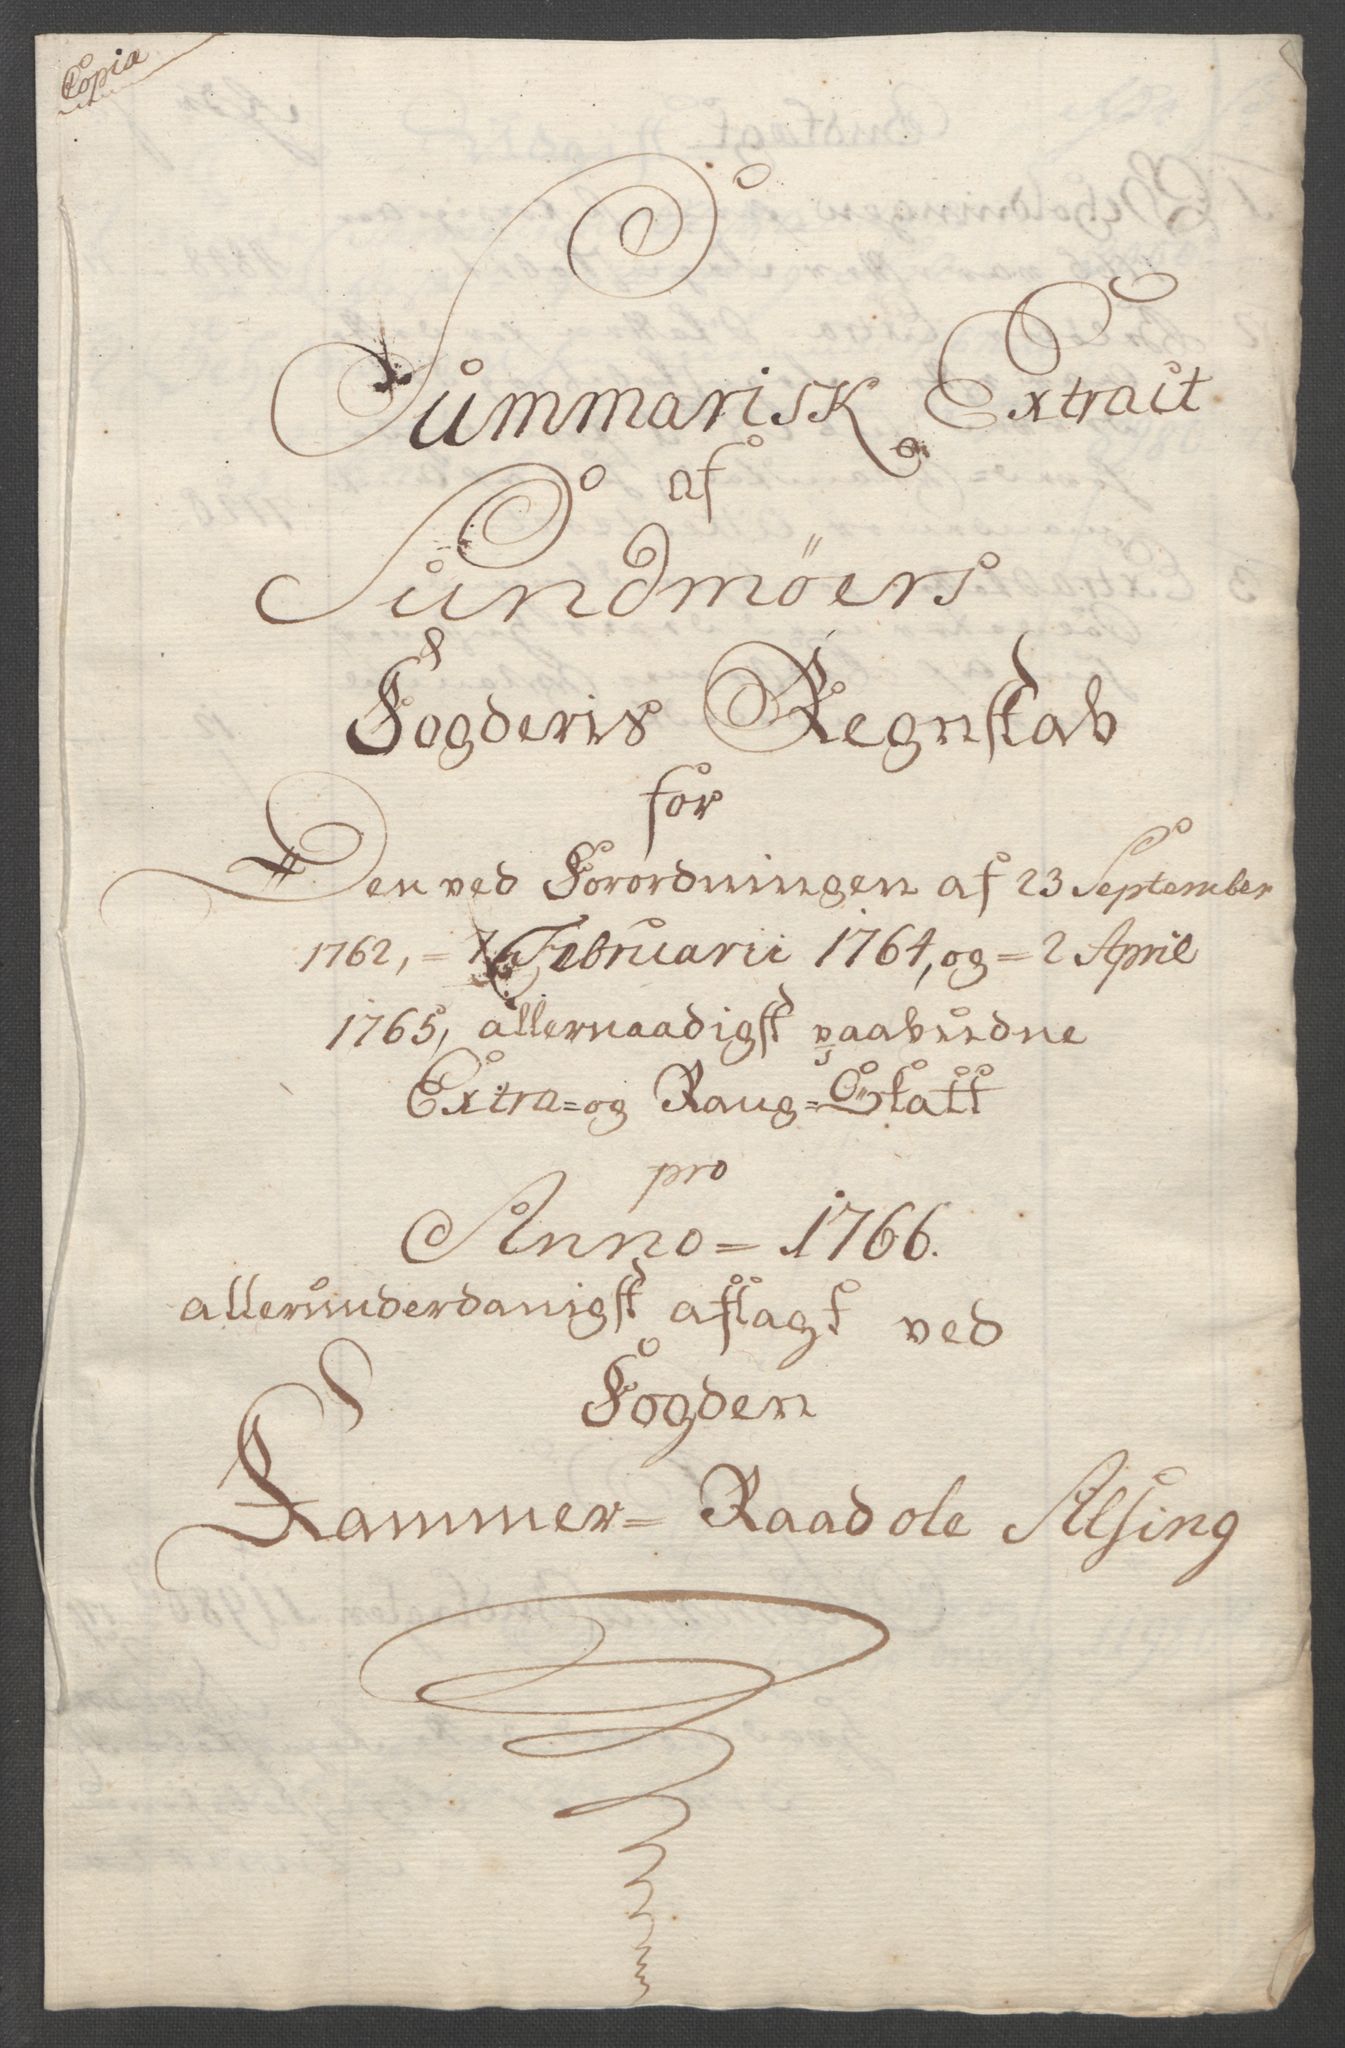 Copia
Summarisk Extrait
af
Sundmöers
Fogderis Regnskab
for
Den ved Forordningen af 23 September
1762, = 7 Februarii 1764, og = 2 April
1765, allernaadigst paabudne
Extra= og Rang=Skatt
pro
Anno = 1766.
allerunderdanigst aflagt ved
Fogden
Kammer= Raad ole Alsing